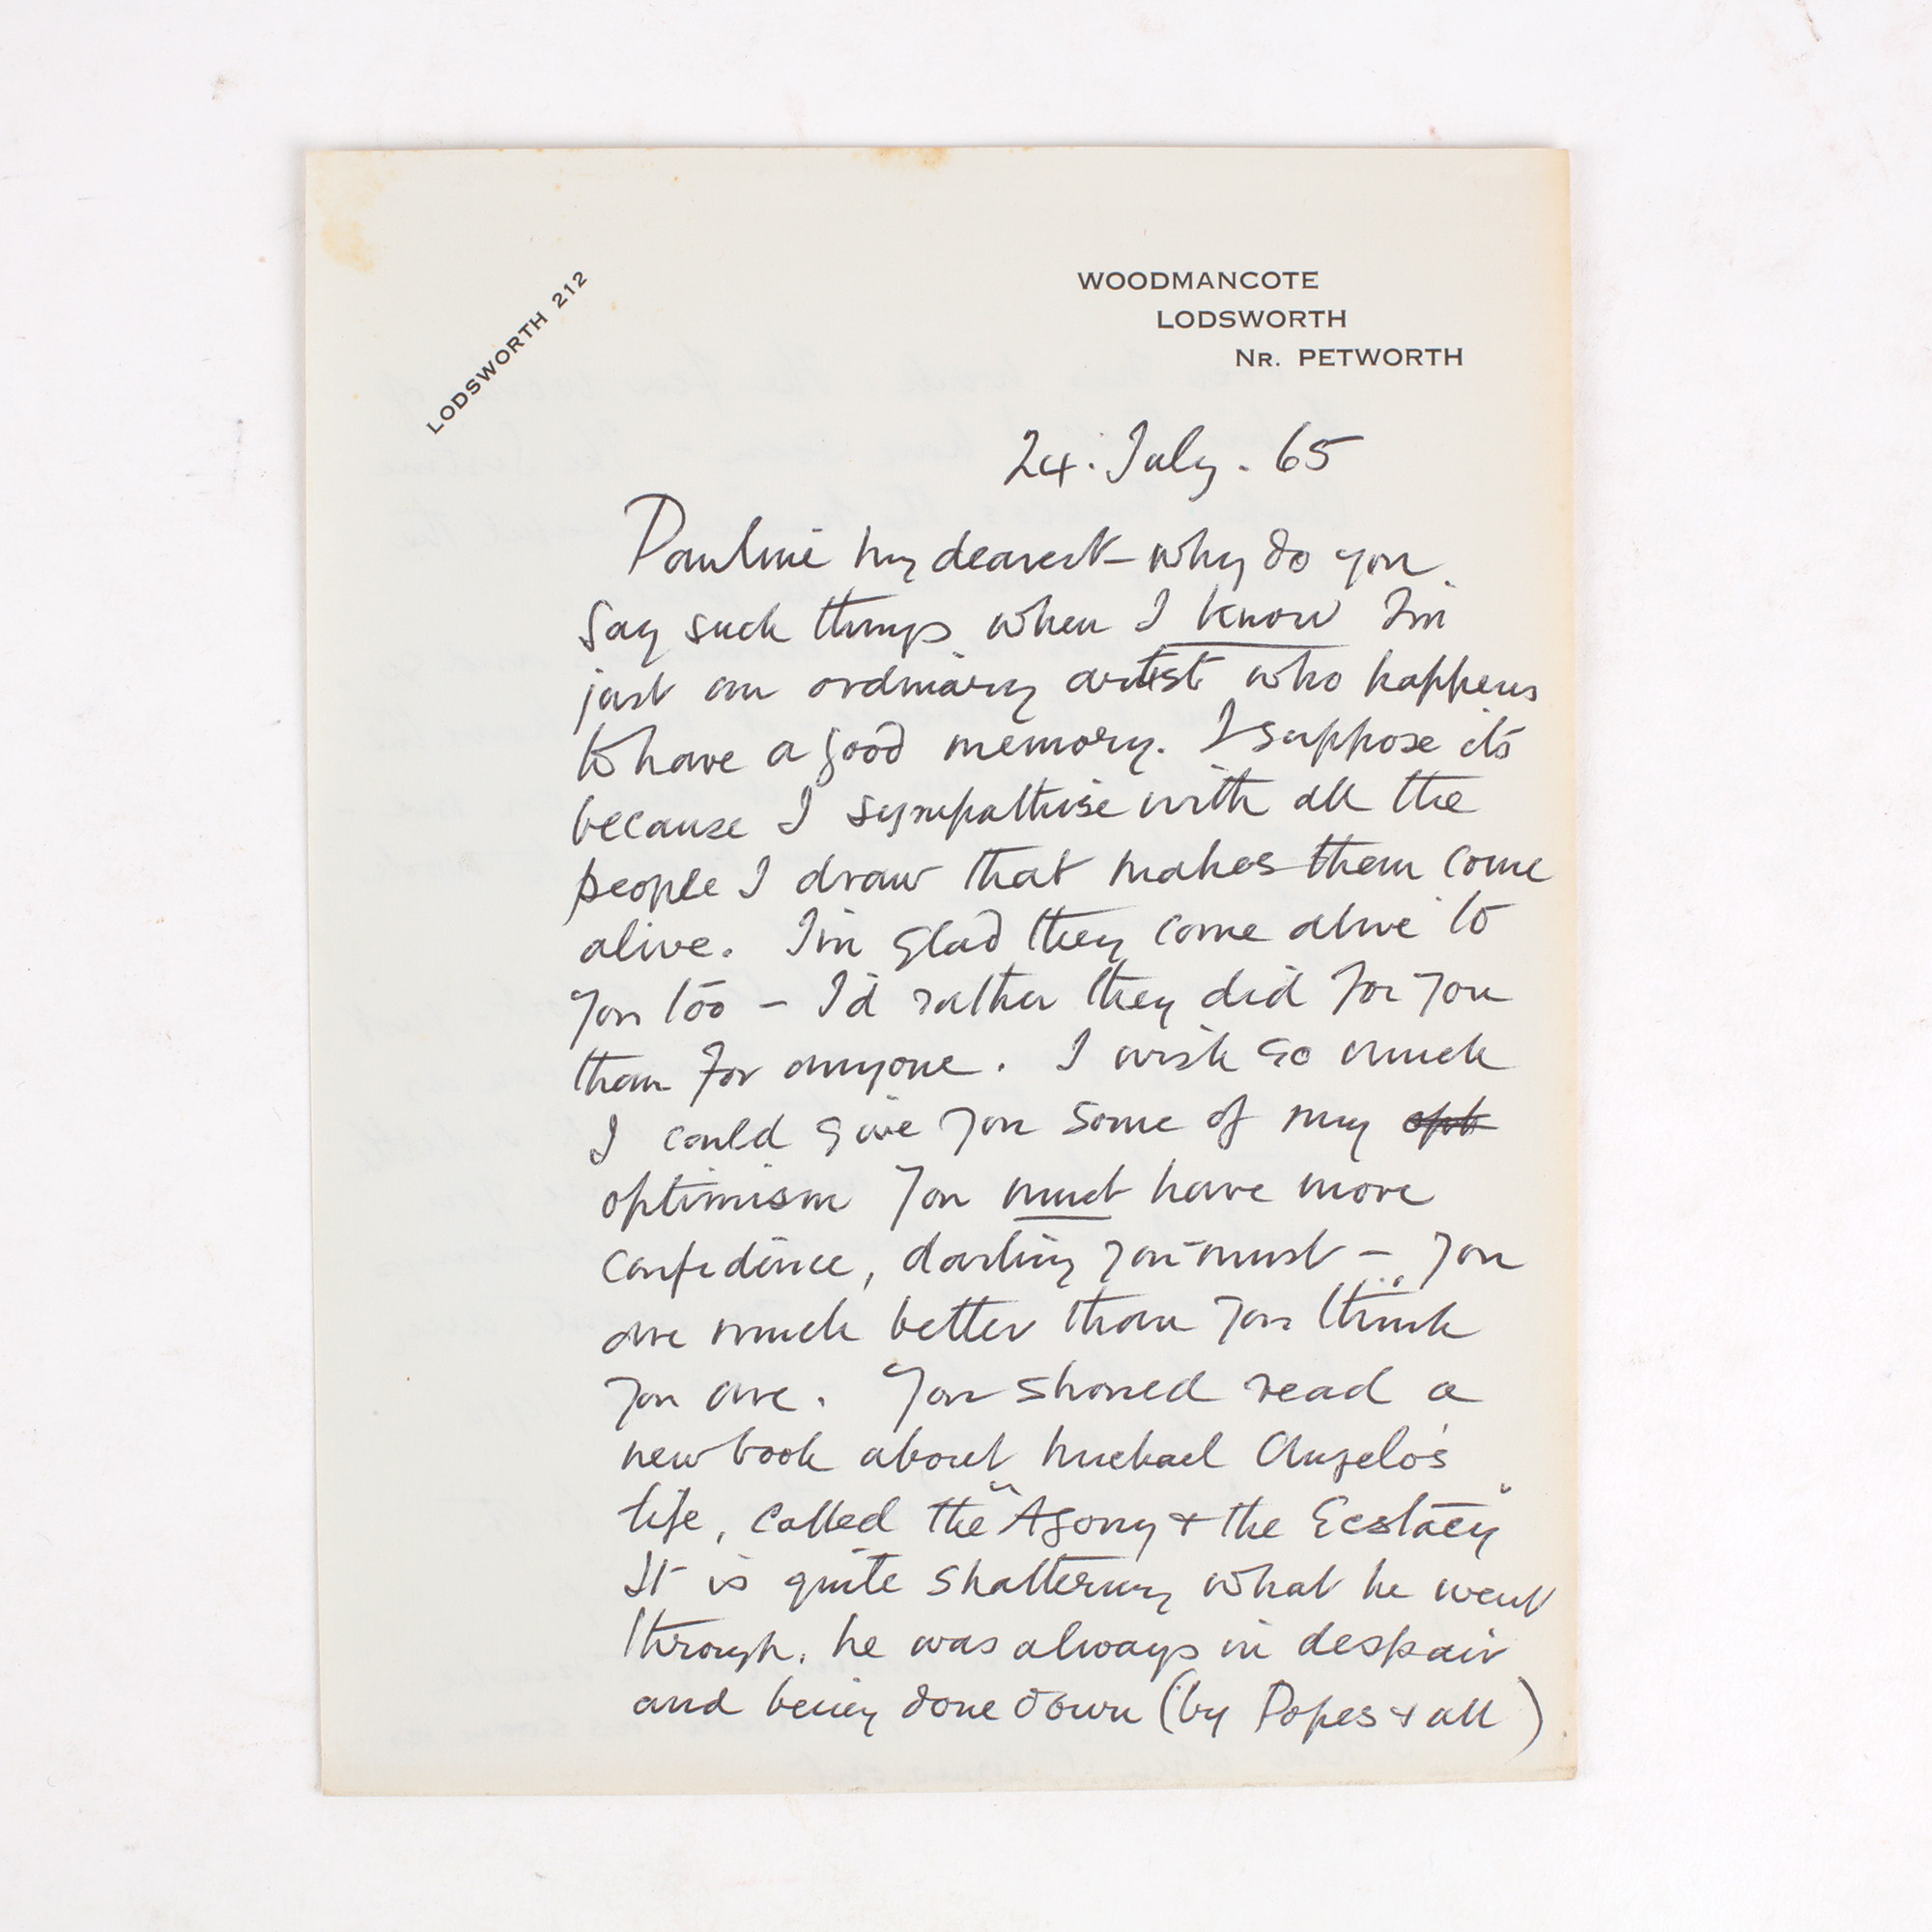 LODSWORTH 212
WOODMANCOTE
LODSWORTH
NR. PETWORTH
24. July. 65
Pauline my dearest - why do you
say such things when I know I'm
just an ordinary artist who happens
to have a good memory. I suppose its
because I sympathise with all the
people I draw that makes them come
alive. I'm glad they come alive to
you too – I'd rather they did for you
than for anyone. I wish so much
I could give you some of my opt
optimism You must have more
confidence, darling you must – you
are much better than you think
you are. You should read a
new book about Michael Angelo's
life, called the "Agony + the Ecstacy"
It is quite shattering what he went
through. he was always in despair
and being done down (by Popes + all)